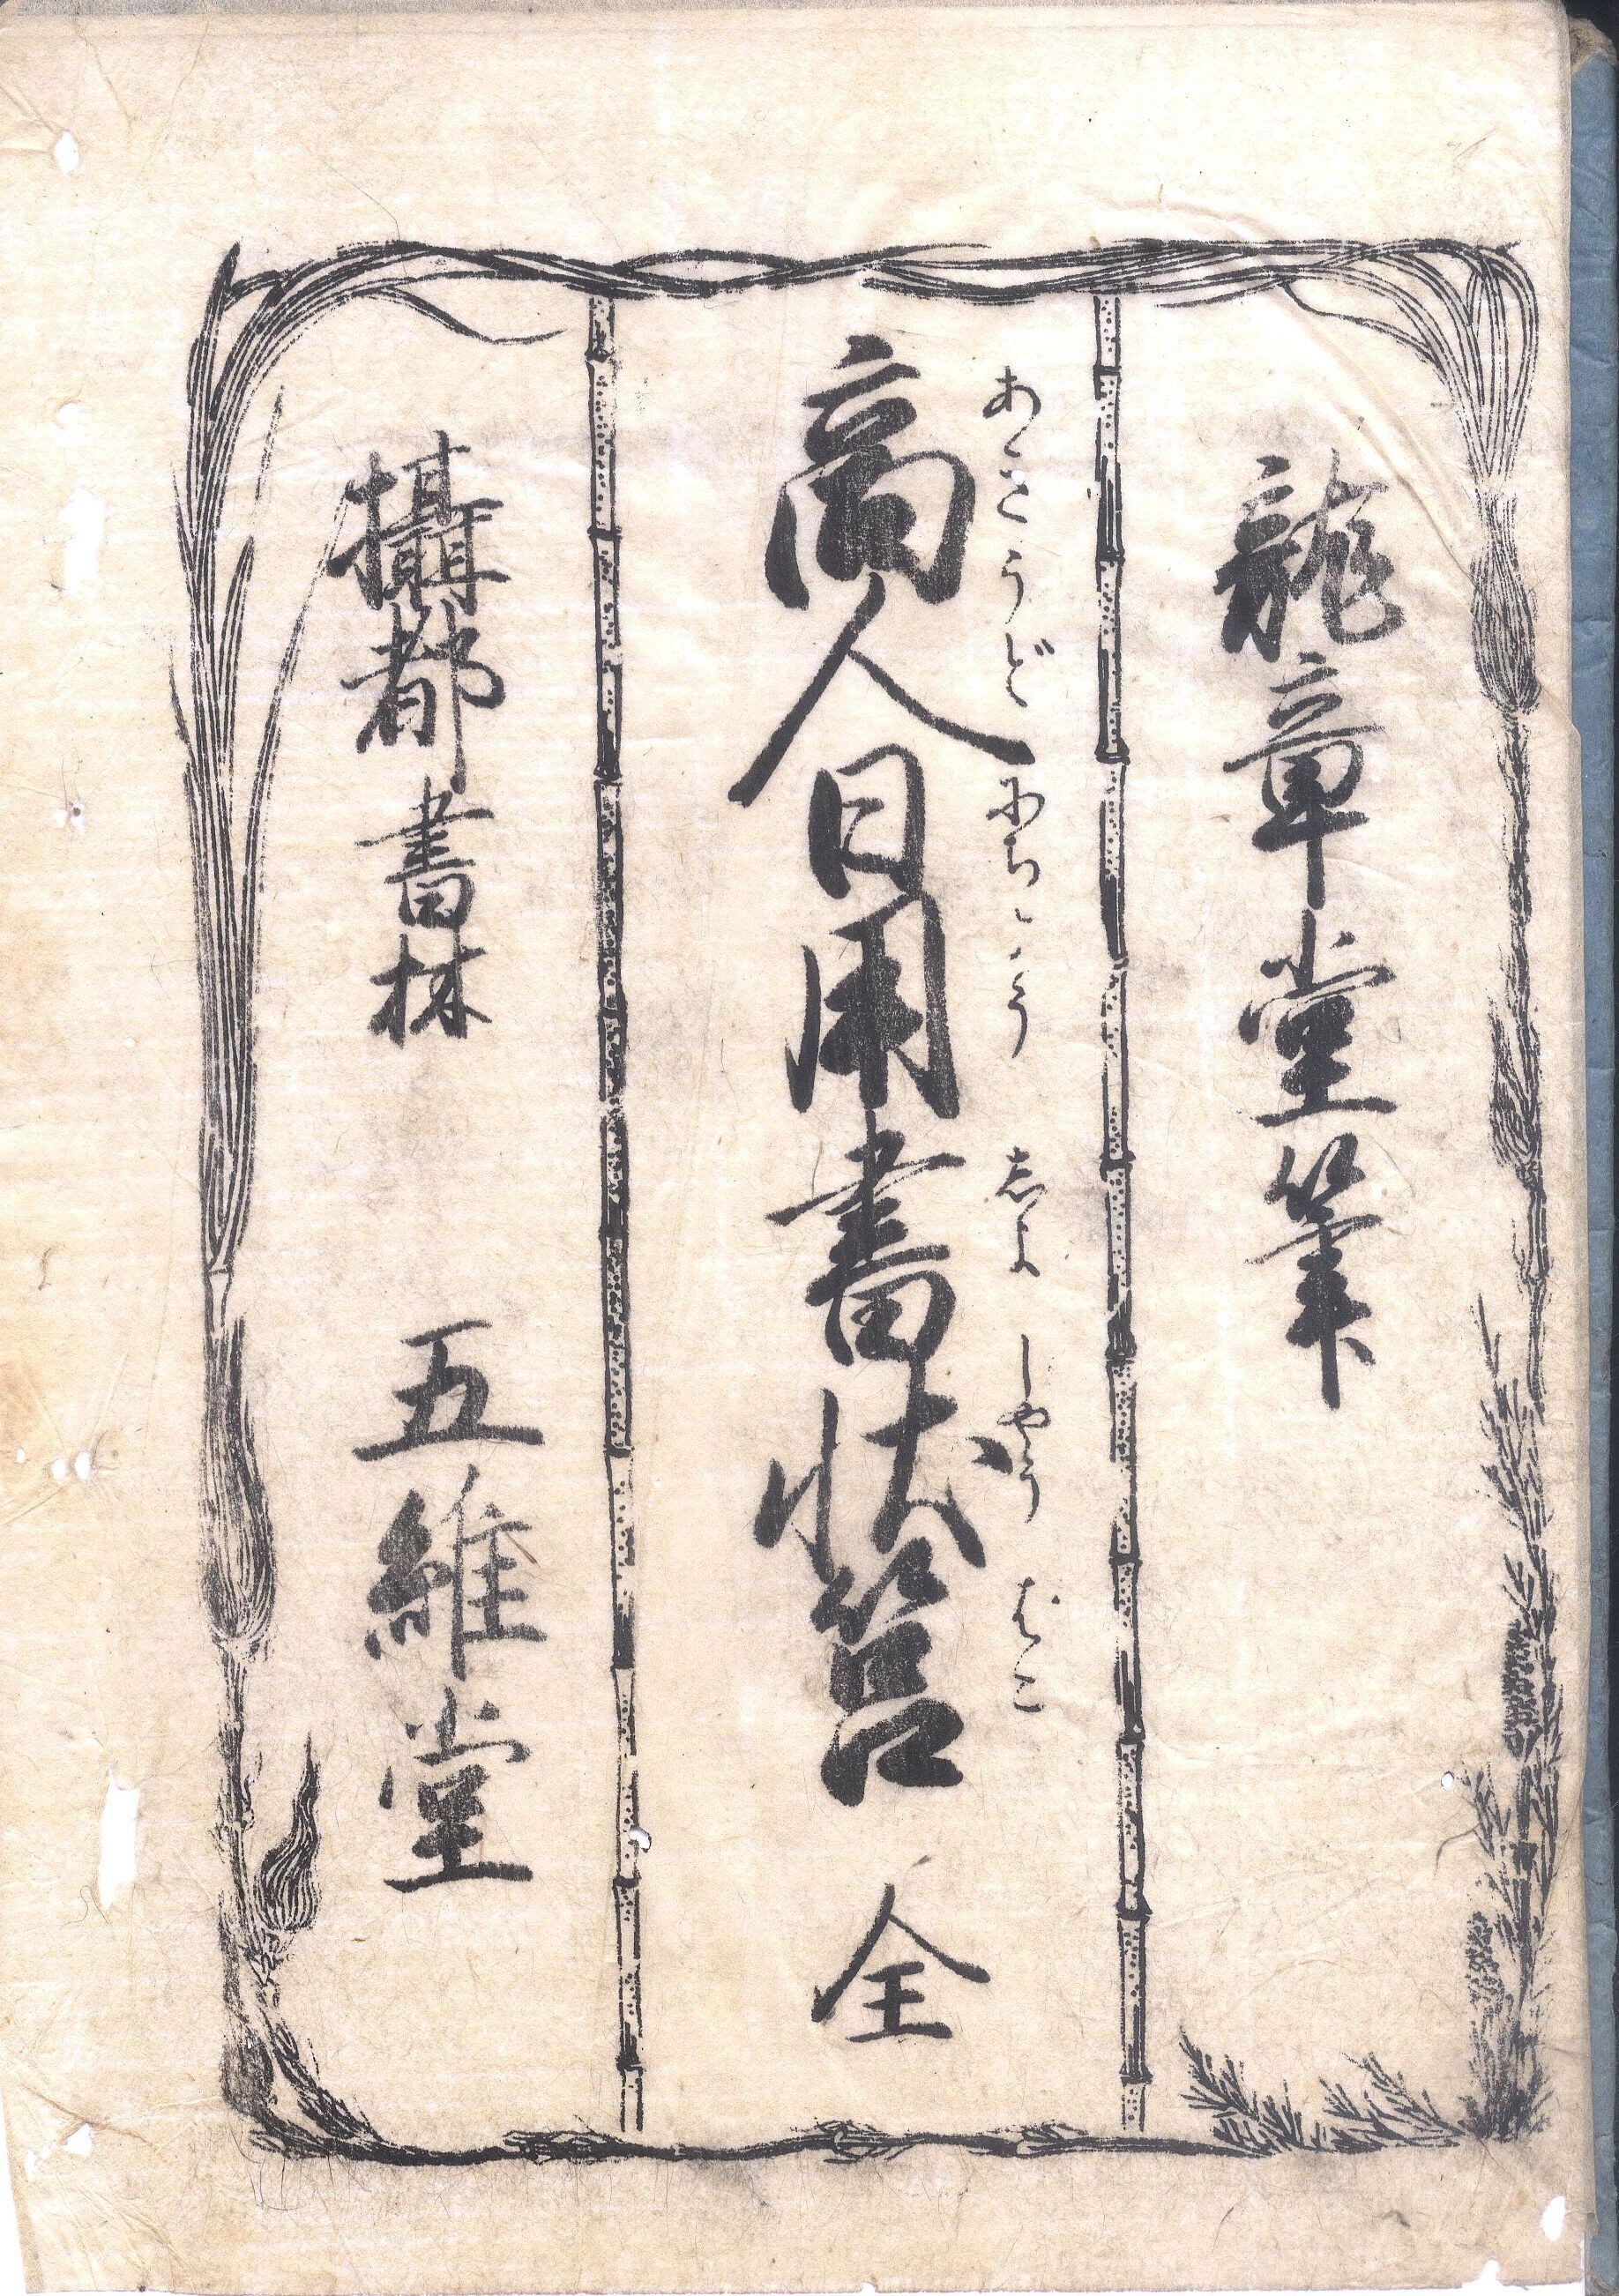 龍章堂筆
あきうど にちよう しよ しやう ばこ
商人日用書状筥 全
攝都書林 五維堂